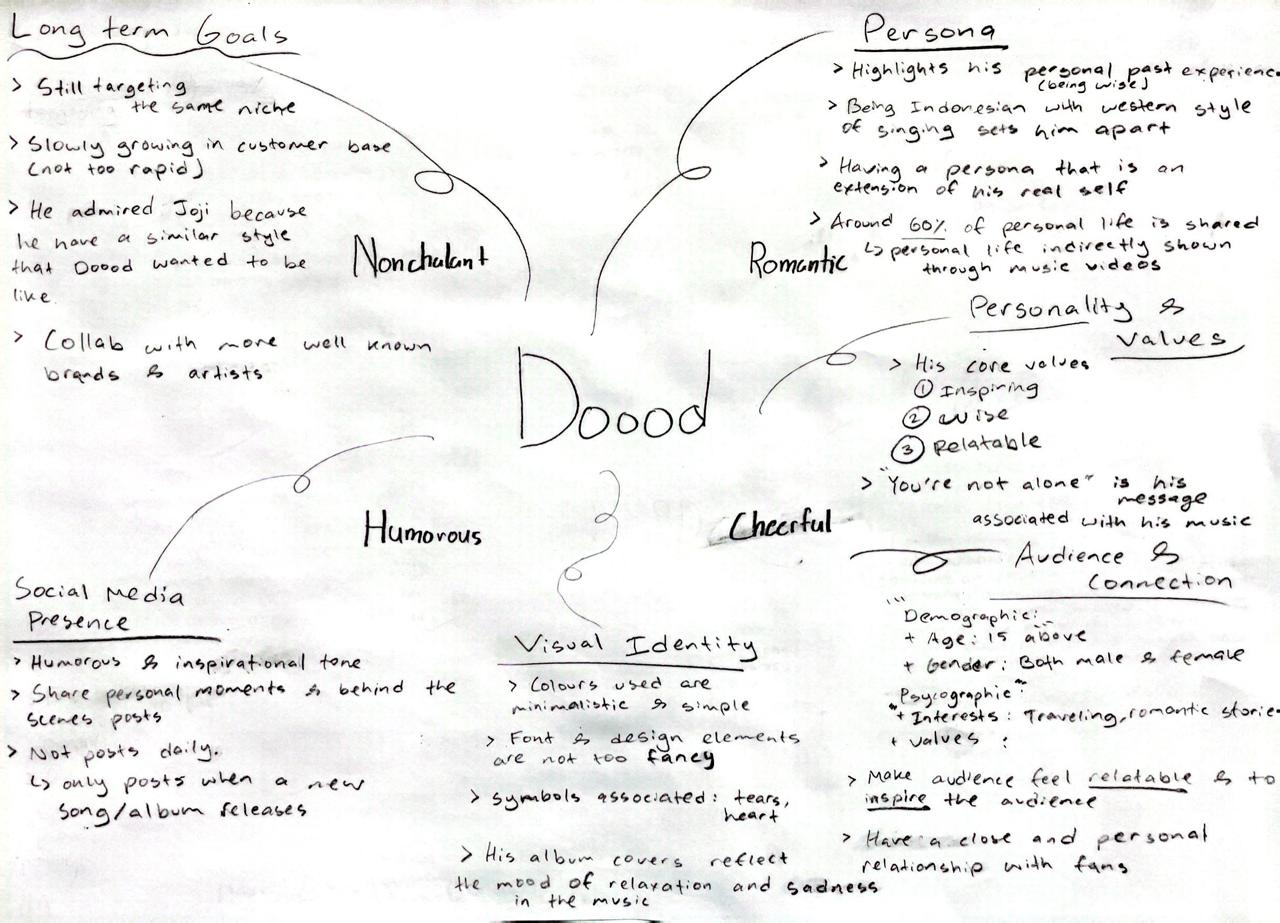 Long term Goals
> Still targeting
the same niche
> Slowly growing in customer base
(not too rapid)
> He admired Joji because
he have a similar style
that Doood wanted to be
like.
> Collab with more well known
brands & artists
Nonchalant
Persona
> Highlights his personal past experience
(being wise)
> Being Indonesian with western style
of singing sets him apart
> Having a persona that is an
extension of his real self
> Around 60% of personal life is shared
↳ personal life indirectly shown
through music videos
Romantic
Personality &
Values
> His core values
① Inspiring
② Wise
③ Relatable
> "You're not alone" is his
message
associated with his music
Doood
Humorous
Cheerful
Audience &
Connection
"Demographic:"
+ Age: 15 above
+ Gender: Both male & female
"Psycographic"
+ Interests: Traveling, romantic stories
+ Values :
> Make audience feel relatable & to
inspire the audience
> Have a close and personal
relationship with fans
Social Media
Presence
> Humorous & inspirational tone
> Share personal moments & behind the
scenes posts
> Not posts daily.
↳ only posts when a new
song/album releases
Visual Identity
> Colours used are
minimalistic & simple
> Font & design elements
are not too fancy
> Symbols associated: tears,
heart
> His album covers reflect
the mood of relaxation and sadness
in the music